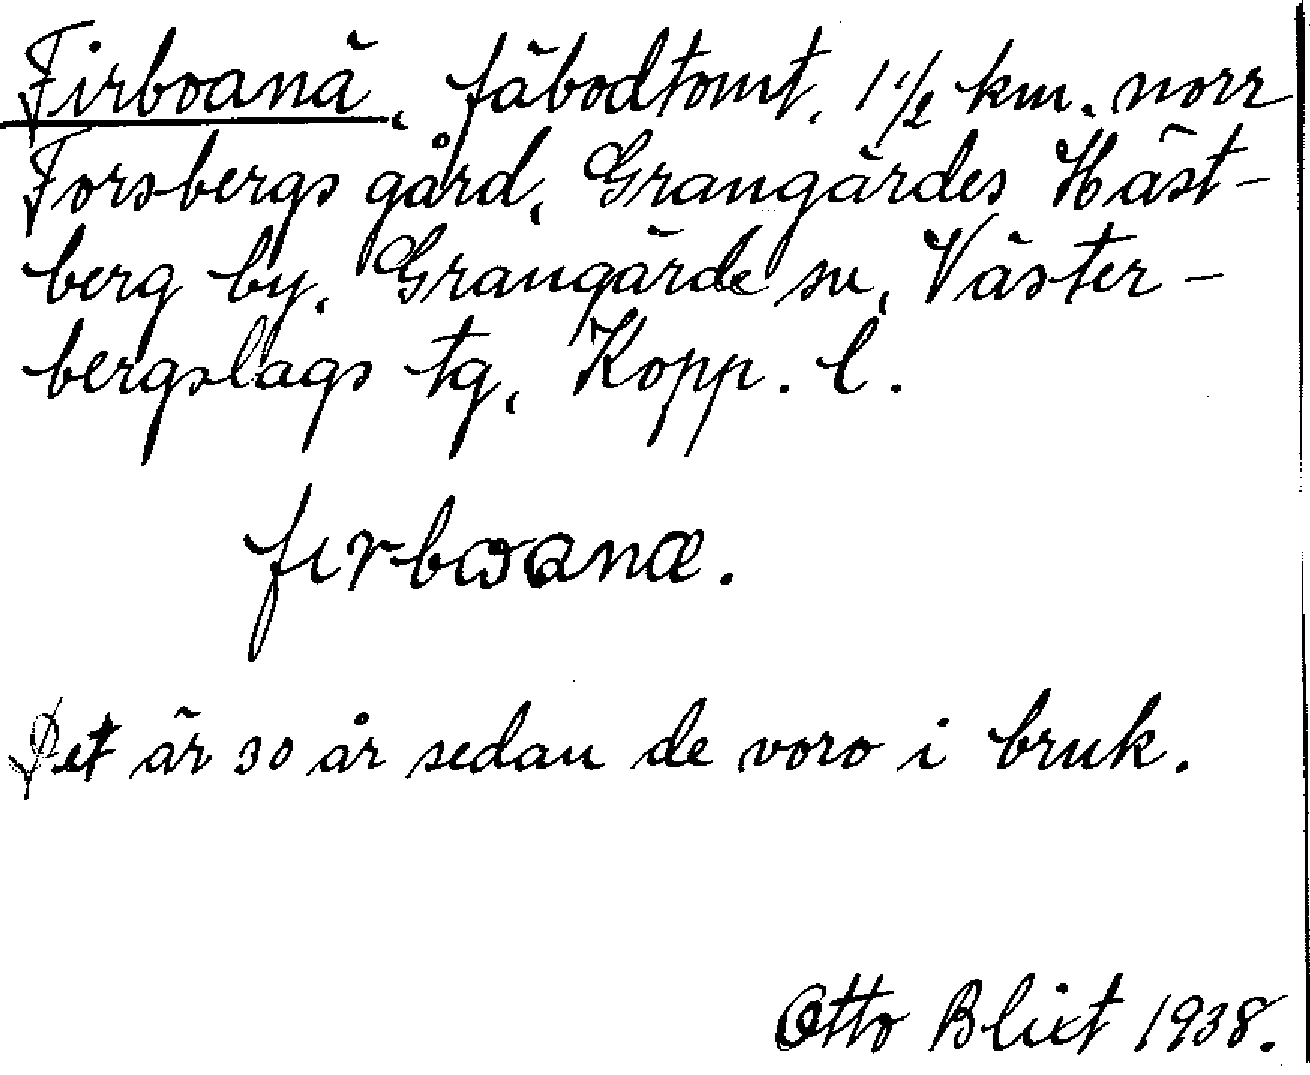 Firboanä, fäbodtomt, 1 1/2 km. norr
Forsbergs gård, Grangärdes Häst-
berg by, Grangärde sn, Väster-
bergslags tg, Kopp. l.
fırbɷanæ.
Det är 30 år sedan de voro i bruk.
Otto Blixt 1938.